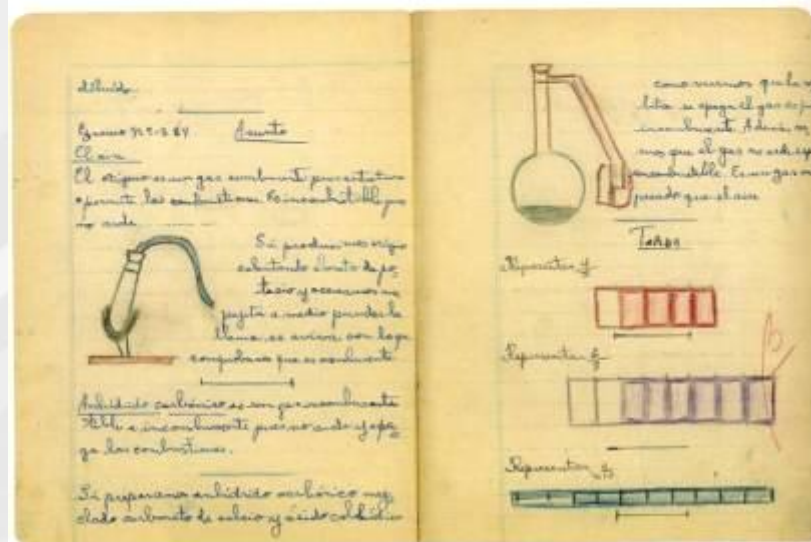 diluído.
Asunto
El aire
El oxígeno es un gas comburente pues activa
o permite las combustiones. Es incombustible pues
no arde
Si producimos oxígeno
calentando clorato de po-
tasio y acercamos una
pajita a medio prender la
llama se aviva con lo que
comprobamos que es comburente
Anhídrido carbónico es un gas incombus
tible e incomburente pues no arde y apa
ga las combustiones.
Si preparamos anhídrido carbónico mez
clado carbonato de calcio y ácido clorhídrico
como vemos que la
se apaga el gas es
incomburente. Además
mos que el gas no arde
incombustible. Es un gas
pesado que el aire
Tarea
Representar
Representar
B
Representar